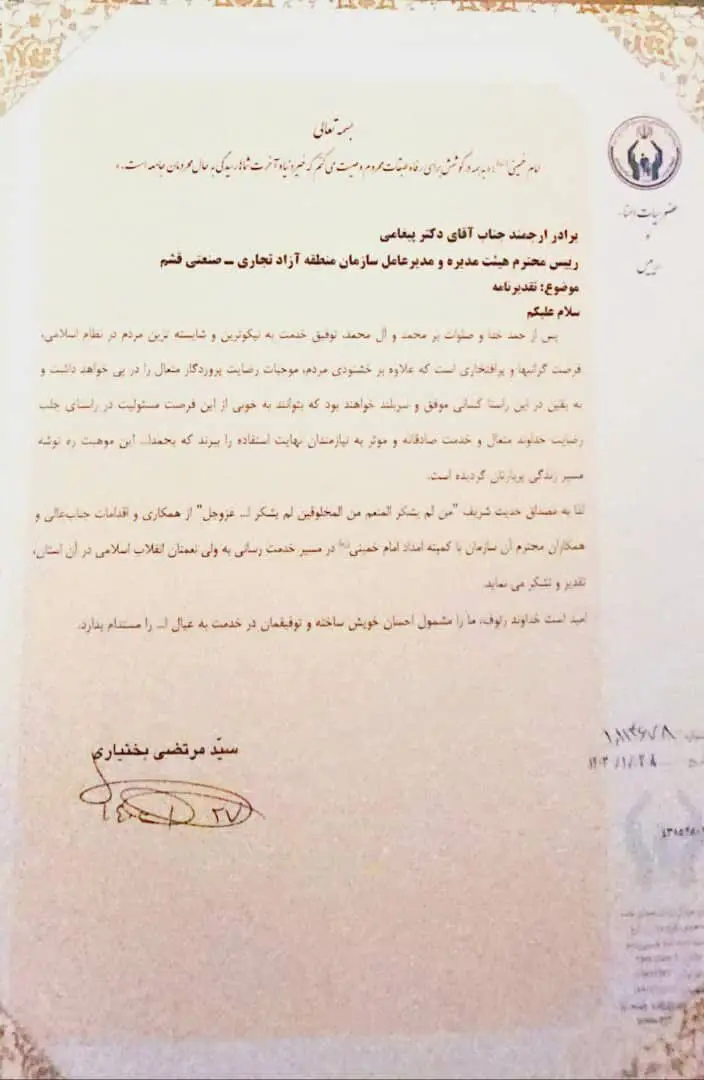 بسمه تعالی
امام خمینی(ره): به همه در کوشش برای رفاه طبقات محروم وصیت می کنم که خیر دنیا و آخرت شما رسیدگی به حال محرومان جامعه است.
برادر ارجمند جناب آقای دکتر پیغامی
رییس محترم هیئت مدیره و مدیرعامل سازمان منطقه آزاد تجاری ــ صنعتی قشم
موضوع: تقدیرنامه
سلام علیکم
پس از حمد خدا و صلوات بر محمد و آل محمد، توفیق خدمت به نیکوترین و شایسته ترین مردم در نظام اسلامی،
فرصت گرانبها و پرافتخاری است که علاوه بر خشنودی مردم، موجبات رضایت پروردگار متعال را در پی خواهد داشت و
به یقین در این راستا کسانی موفق و سربلند خواهند بود که بتوانند به خوبی از این فرصت مسئولیت در راستای جلب
رضایت خداوند متعال و خدمت صادقانه و موثر به نیازمندان نهایت استفاده را ببرند که بحمدا... این موهبت ره توشه
مسیر زندگی پربارتان گردیده است.
لذا به مصداق حدیث شریف "من لم یشکر المنعم من المخلوقین لم یشکر ا... عزوجل" از همکاری و اقدامات جناب‌عالی و
همکاران محترم آن سازمان با کمیته امداد امام خمینی(ره) در مسیر خدمت رسانی به ولی نعمتان انقلاب اسلامی در آن استان،
تقدیر و تشکر می نماید.
امید است خداوند رئوف، ما را مشمول احسان خویش ساخته و توفیقمان در خدمت به عیال ا... را مستدام بدارد.
سیّد مرتضی بختیاری